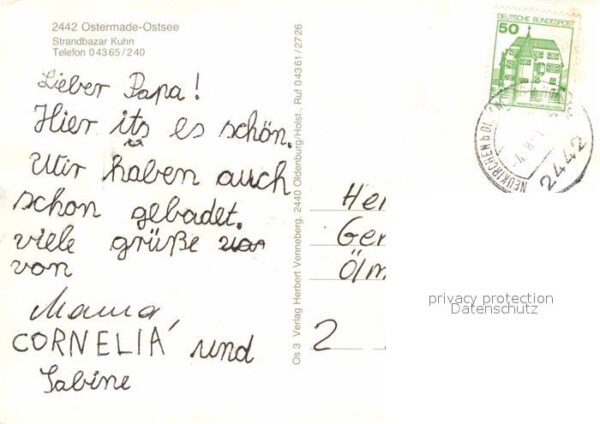 2442 Ostermade-Ostsee
Strandbazar Kuhn
Telefon 0 43 65 / 2 40
Lieber Papa!
Hier its es schön.
Wir haben auch
schon gebadet.
viele grüße
von
Mama,
CORNELIA und
Sabine
Os 3 Verlag Herbert Venneberg, 2440 Oldenburg/Holst., Ruf 0 43 61 / 27 26
DEUTSCHE BUNDESPOST
50
NEUKIRCHEN b OLDENB
2442
Her
Ger
Ölm
2
privacy protection
Datenschutz